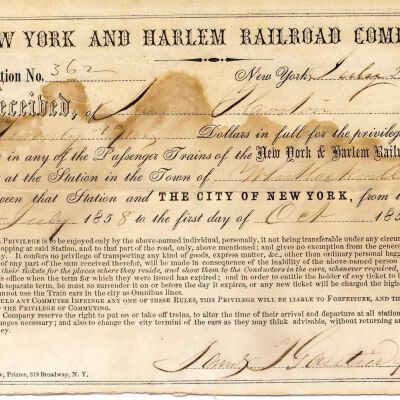 EW YORK AND HARLEM RAILROAD COMP
tion No. 362 New York, July
eceived, of
Dollars in full for the privileg
in any of the Passenger Trains of the New York & Harlem Railr
at the Station in the Town of
ween that Station and THE CITY OF NEW YORK, from t
July 1858 to the first day of Oct 185
PRIVILEGE is to be enjoyed only by the above-named individual, personally, it not being transferable under any circu
opping at said Station, and to that part of the road, only, above mentioned; and gives no exemption from the genera
y. It confers no privilege of transporting any kind of goods, express matter, &c., other than ordinary personal bagg
of any part of the sum received therefor, is made in consequence of the inability of the above-named person
their tickets for the places where they reside, and show them to the Conductors in the cars, whenever required,
's office when the term for which they were issued has expired; and in order to entitle the holder of any ticket to
h separate term, he must so surrender it on or before the day it expires, or any new ticket will be charged the high
not use the Train cars in the city as Omnibus lines.
OULD ANY COMMUTER INFRINGE ANY ONE OF THESE RULES, THIS PRIVILEGE WILL BE LIABLE TO FORFEITURE, AND TH
THE PRIVILEGE OF COMMUTING.
Company reserve the right to put on or take off trains, to alter the time of their arrival and departure at all station
anges necessary; and also to change the city termini of the cars as they may think advisable, without returning a
ey.
, Printer, 379 Broadway, N. Y.